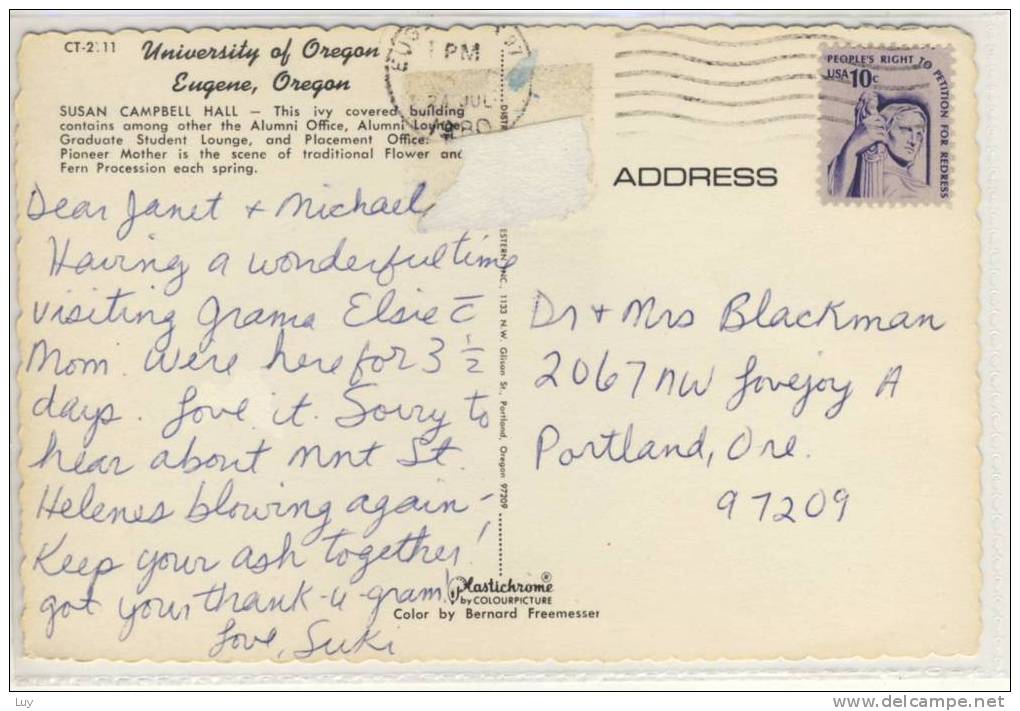 CT-2 11
University of Oregon
Eugene, Oregon
SUSAN CAMPBELL HALL — This ivy covered building
contains among other the Alumni Office, Alumni Lounge,
Graduate Student Lounge, and Placement Office.
Pioneer Mother is the scene of traditional Flower and
Fern Procession each spring.
Dear Janet + Michael,
Having a wonderful time
visiting Grama Elsie c̄
Mom. Were here for 3 ½
days. Love it. Sorry to
hear about Mnt St.
Helenes blowing again –
Keep your ash together!
got your thank-u-gram!
Love, Suki
EUG 97
PM
24 JUL
1980
DISTR
ESTERN, INC., 1133 N.W. Glisan St., Portland, Oregon 97209
Plastichrome®
by COLOURPICTURE
Color by Bernard Freemesser
PEOPLE'S RIGHT TO PETITION FOR REDRESS
USA 10c
ADDRESS
Dr + Mrs Blackman
2067 NW Lovejoy A
Portland, Ore.
97209
Luy
www.delcampe.net